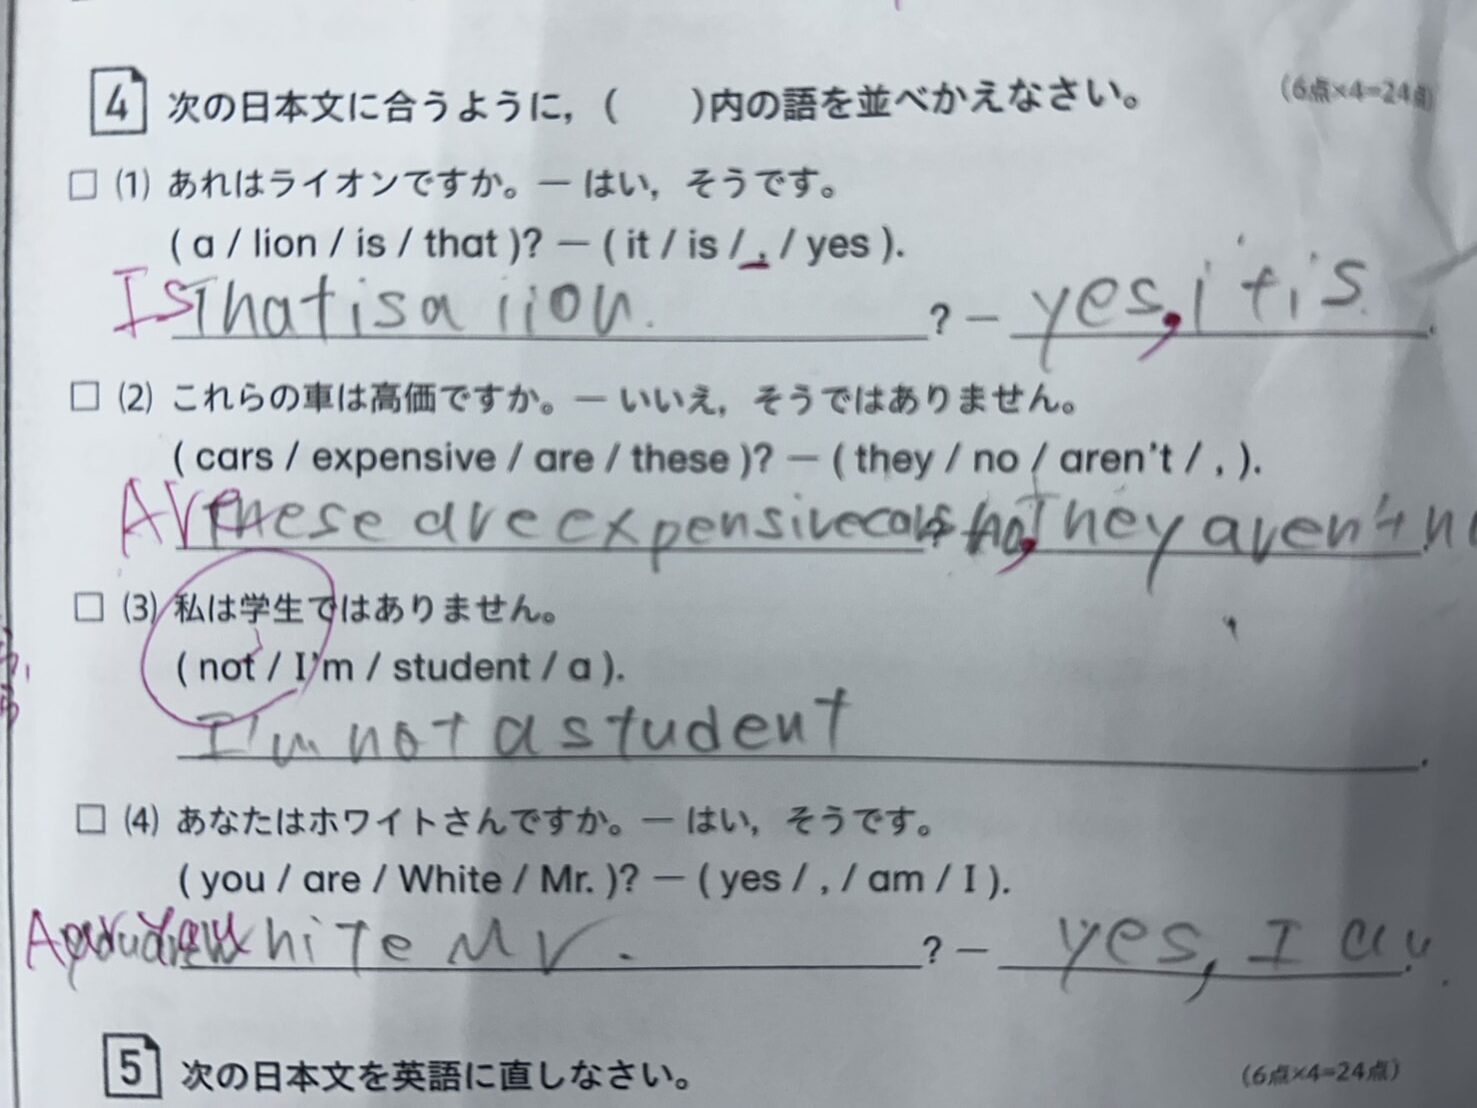 4 次の日本文に合うように，( )内の語を並べかえなさい。 (6点×4=24点)
□ (1) あれはライオンですか。— はい，そうです。
( a / lion / is / that )? — ( it / is / , / yes ).
Is That is a lion. ? — yes, it is.
□ (2) これらの車は高価ですか。— いいえ，そうではありません。
( cars / expensive / are / these )? — ( they / no / aren't / , ).
These are expensive cars ? No, They aren't no
□ (3) 私は学生ではありません。
( not / I'm / student / a ).
I'm not a student.
□ (4) あなたはホワイトさんですか。— はい，そうです。
( you / are / White / Mr. )? — ( yes / , / am / I ).
White Mr. ? — yes, I
5 次の日本文を英語に直しなさい。 (6点×4=24点)